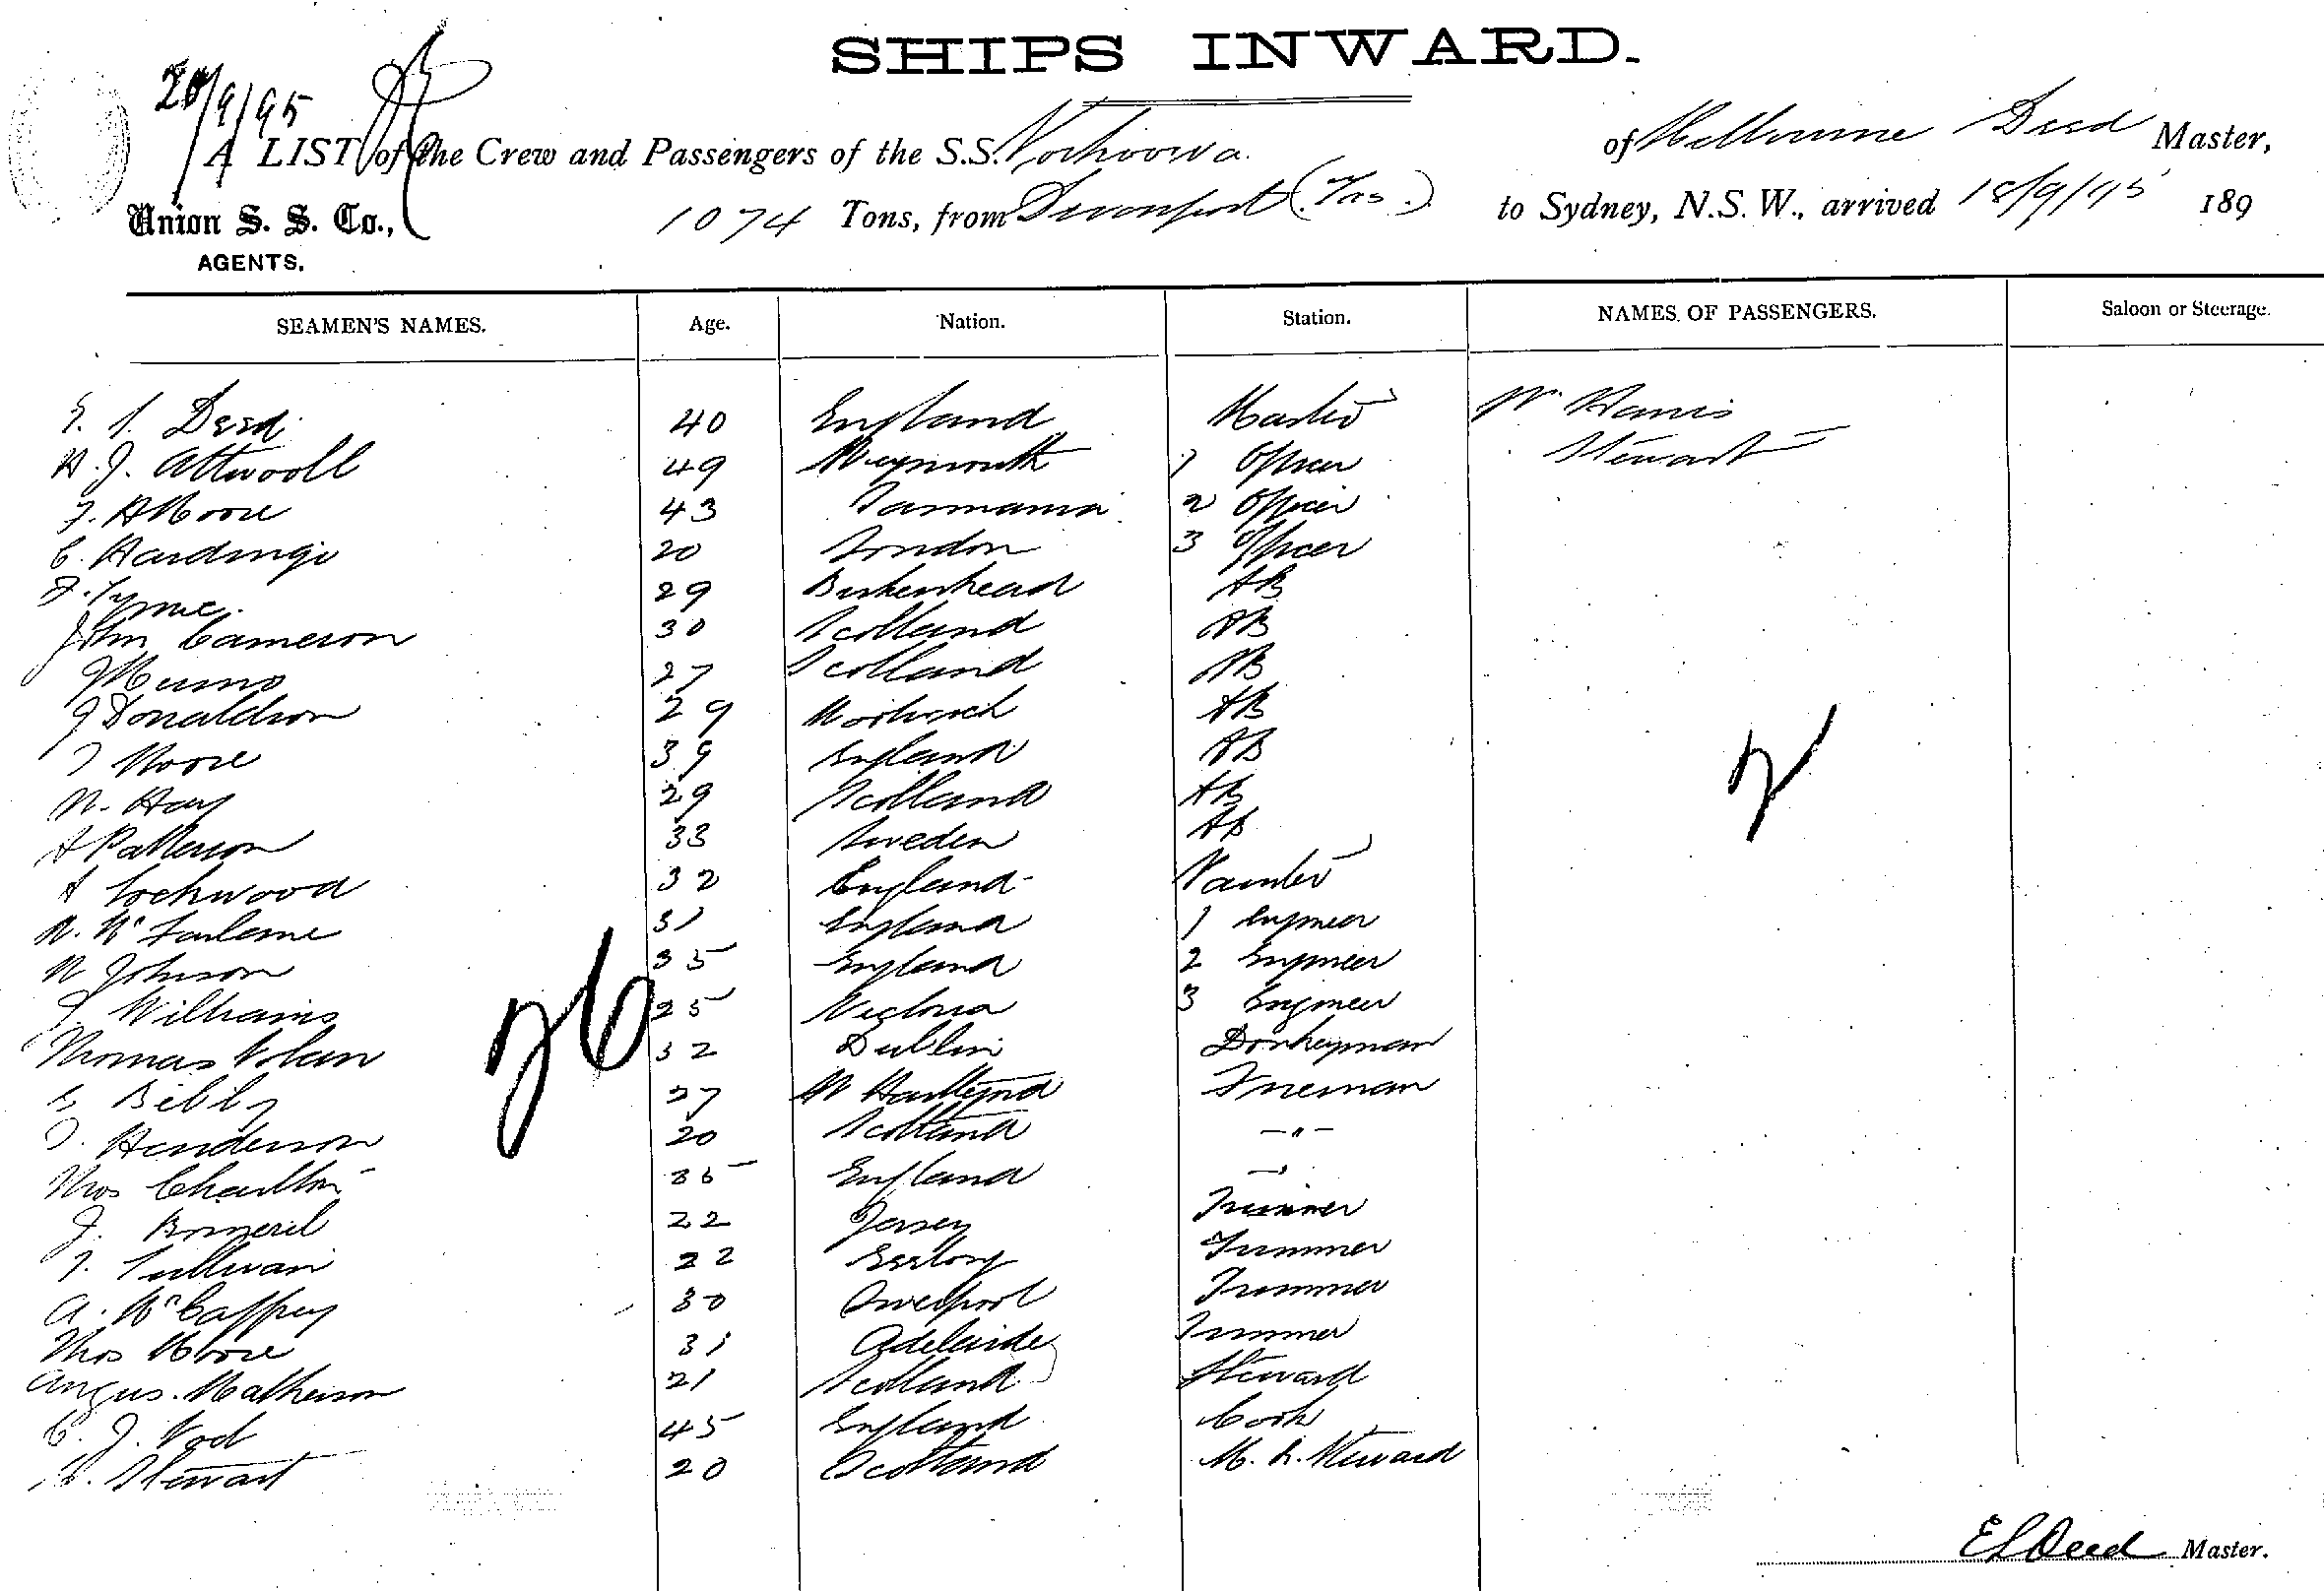 SHIPS INWARD.
20/9/95
A LIST of the Crew and Passengers of the S.S. of Melbourne Deed Master,
Union S. S. Co., 1074 Tons, from Devonport (Tas.) to Sydney, N.S.W., arrived 18/9/95 189
AGENTS.
SEAMEN'S NAMES. Age. Nation. Station. NAMES OF PASSENGERS. Saloon or Steerage.
Deed 40 England Master W. Harris
H. J. Attwooll 49 Weymouth 1 Officer Stewart
F. A Moore 43 Tasmania 2 Officer
C. Hardinge 20 London 3 Officer
29 Birkenhead AB
John Cameron 30 Scotland AB
J Munro 27 Scotland AB
J Donaldson 29 AB
T Moore 39 England AB
W. Hay 29 Scotland AB
A Patterson 33 Sweden AB
A Lockwood 32 England
2
W. McFarlane 31 England 1 Engineer
W Johnson 35 England 2 Engineer
26
J. Williams 25 Victoria 3 Engineer
Thomas Nolan 32 Dublin Donkeyman
Bibby 27 W Hartlepool Fireman
J. Henderson 20 Scotland -"-
Thos Charlton 35 England -"-
J. 22 Jersey Trimmer
J. Sullivan 22 Geelong Trimmer
A. McCaffrey 30 Liverpool Trimmer
Thos Moore 31 Adelaide Trimmer
Angus Matheson 21 Scotland Steward
C. J. 45 England Cook
Stewart 20 Scotland M. R. Steward
E L Deed Master.